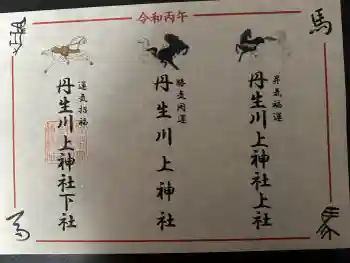 令和丙午
馬
昇気福運
丹生川上神社上社
勝支開運
丹生川上神社
運気招福
丹生川上神社下社